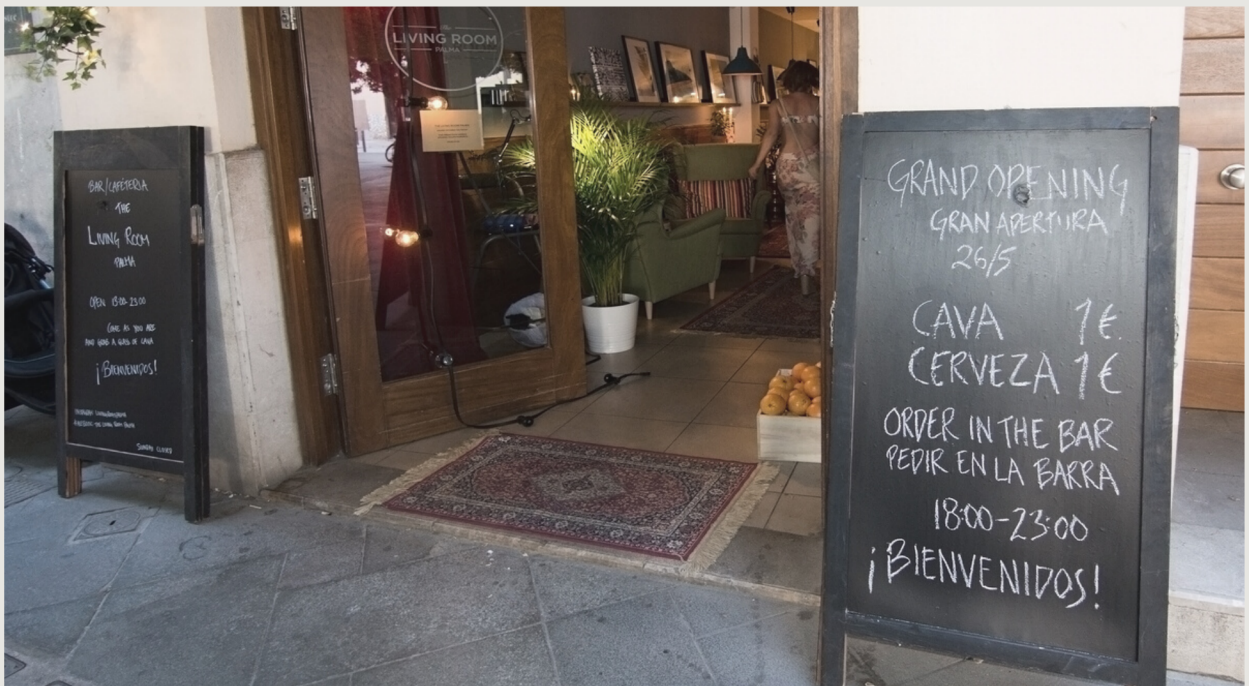 BAR/CAFETERIA
THE
LIVING ROOM
PALMA
OPEN 18:00-23:00
COME AS YOU ARE
AND GRAB A GLASS OF CAVA
¡BIENVENIDOS!
SUNDAY CLOSED
LIVING ROOM
PALMA
GRAND OPENING
GRAN APERTURA
26/5
CAVA 1€
CERVEZA 1€
ORDER IN THE BAR
PEDIR EN LA BARRA
18:00-23:00
¡BIENVENIDOS!